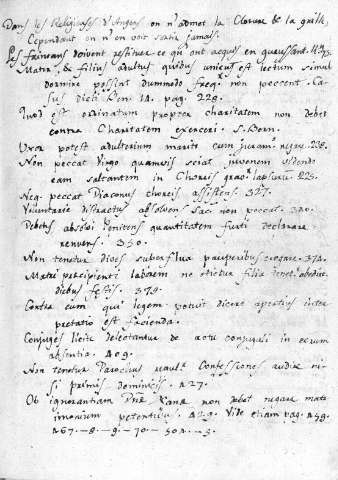 Dans les Religieuses d'Angers on n'admet la Closture de la grille,
Cependant on n'en voit sortir jamais.
Les faineans doivent restituer ce qu'ont acquis en gueusant.
Mater, & filius adultus quibus unicus est lectum simul
dormire possint dummodo freqr. non peccent. Ca-
sus dicti Ben. 14. pag. 228.
Quod est ordinatum propter charitatem non debet
contra Charitatem exerceri. S. Bern.
Uxor potest adulterium marito cum juram. negare. 228.
Non peccat Virgo quamvis sciat juvenem videndo
eam saltantem in Choreis lapsurum. 225.
Neq. peccat Diaconus choreis assistens. 327.
Voluntarie distractus absolvens Sac. non peccat. 340.
Debens absolvi Penitens quantitatem furti declarare
renuens. 350.
Non tenetur dives superflua pauperibus erogare. 374.
Matri percipienti laborem ne otietur filia tenet. obedire
diebus festis. 379.
Contra eum qui legem potuit dicere apertius inter
pretatio est facienda.
Conjuges licite delectantur de actu conjugali in eorum
absentia. 409.
Non tenetur Parochus Confessiones audire ni-
si primis dominicis. 427.
Ob ignorantiam non debet negare matri
imonium petentibus. 429. Vide etiam pag. 458.
467. - 8. - 9. - 70 - 501. - 5.